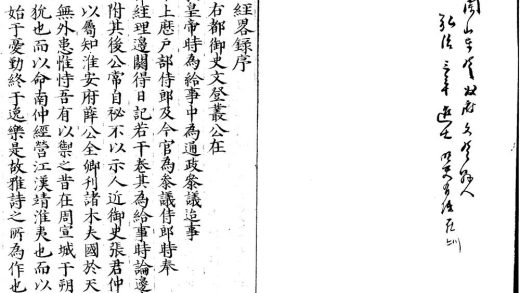 弘治
經畧錄序
右都御史文登叢公在
皇帝時為給事中為通政叅議迨事
上歷戶部侍郎及今官為叅議侍郎時奉
命經理邊關得日記若干卷其為給事時論邊
附其後公常自秘不以示人近御史張君仲
以屬知淮安府薛公全卿刊諸木夫國於天
無外患惟恃吾有以禦之昔在周宣城于朔
犹也而以命南仲經營江漢靖淮夷也而以
始于憂勤終于逸樂是故雅詩之所為作也